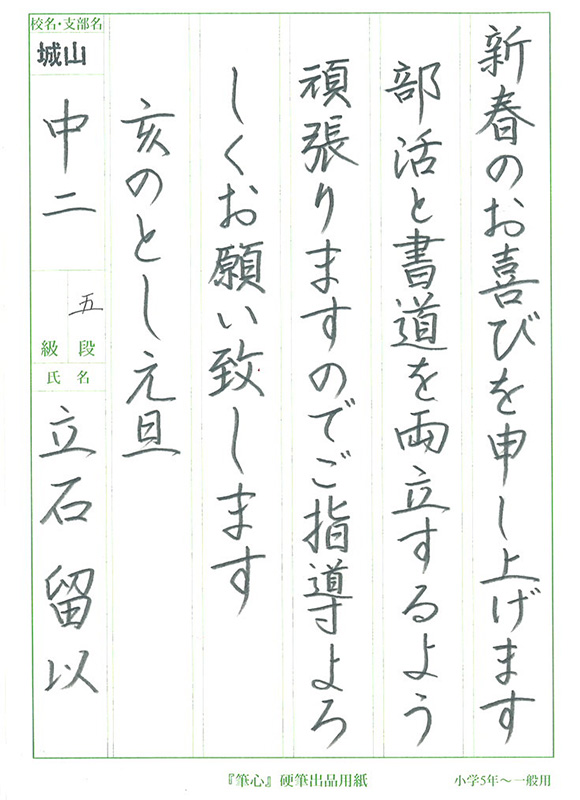 新春のお喜びを申し上げます
部活と書道を両立するよう
頑張りますのでご指導よろ
しくお願い致します
亥のとし元旦
校名・支部名
城山
中二
五
級 段
氏名
立石 留以
『筆心』硬筆出品用紙
小学5年～一般用